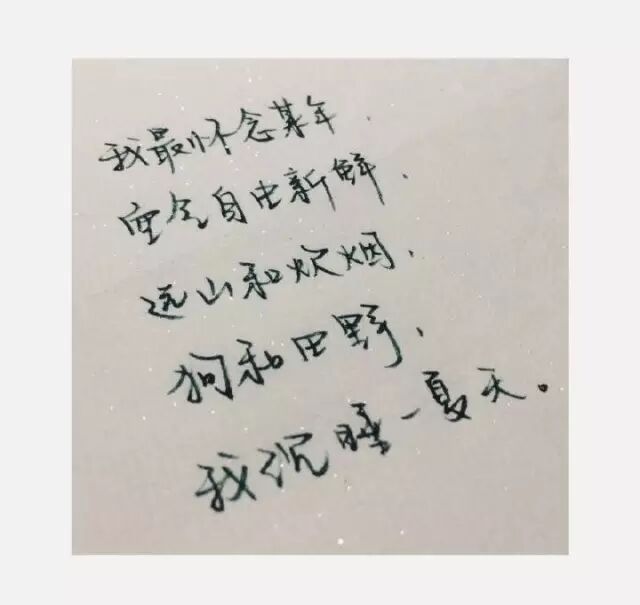 我最怀念某年
空气自由新鲜、
远山和炊烟、
狗和田野、
我沉睡一夏天。